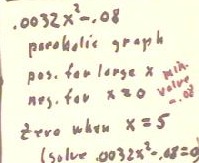 .0032x²-.08
parabolic graph
pos. for large x
neg. for x≈0 min. value -.08
Zero when x=5
(solve .0032x²-.08=0